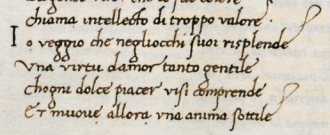 chiama intellecto di troppo valore
I o veggio che negliocchi suoi risplende
vna virtu damor tanto gentile
chogni dolce piacer visi comprende
Et muove allora vna anima sottile